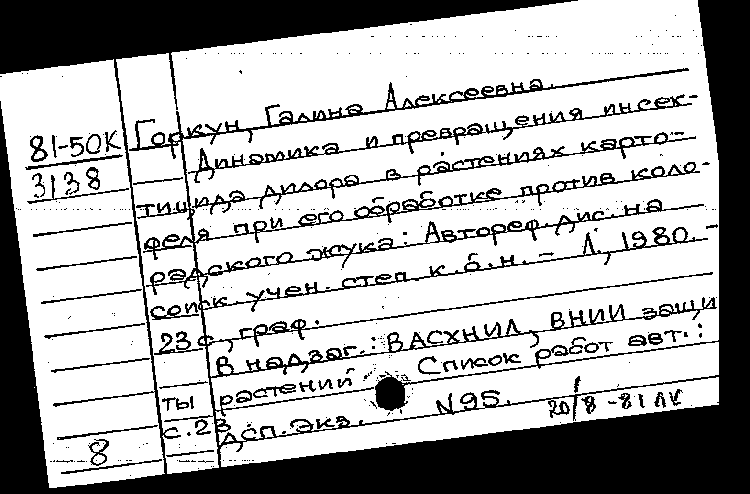 81-50К
3138
Горкун, Галина Алексеевна.
Динамика и превращения инсек-
тицида дилора в растениях карто-
феля при его обработке против коло-
радского жука: Автореф. дис. на
соиск учен. степ. к.б.н. - Л., 1980. -
23 с., граф.
В надзаг.: ВАСХНИЛ, ВНИИ защи
ты растений. Список работ авт.:
с. 23
ДСП. Экз. N 95.
20/8 -81 ЛК
8